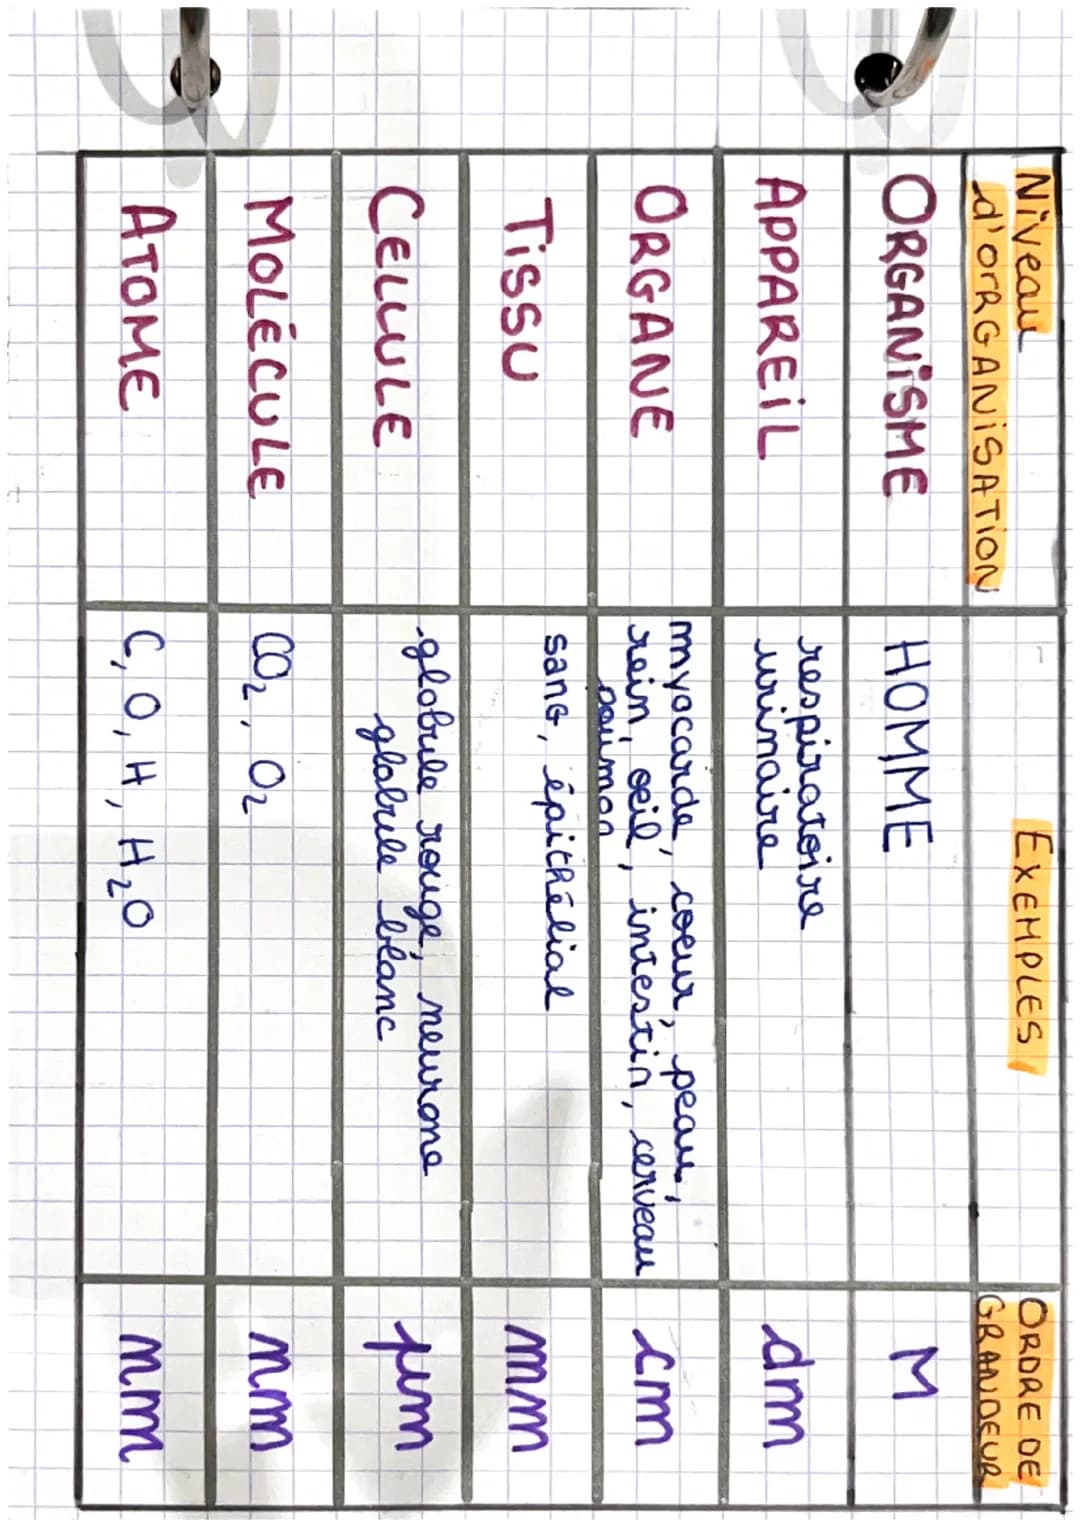 Niveau
d'ORGANiSATiON
EXEMPLES
ORDRE DE
GRANDEUR
ORGANiSME
HOMME
M
APPAREiL
respiratoire
urinaire
dm
ORGANE
myocarde, coeur, peau,
rein, œil, intestin, cerveau
poumon
cm
TiSSU
sang, épithélial
mm
CELLULE
-globule rouge, neurone
globule blanc
µm
MOLÉCULE
CO₂, O₂
nm
ATOME
C, O, H, H₂O
nm